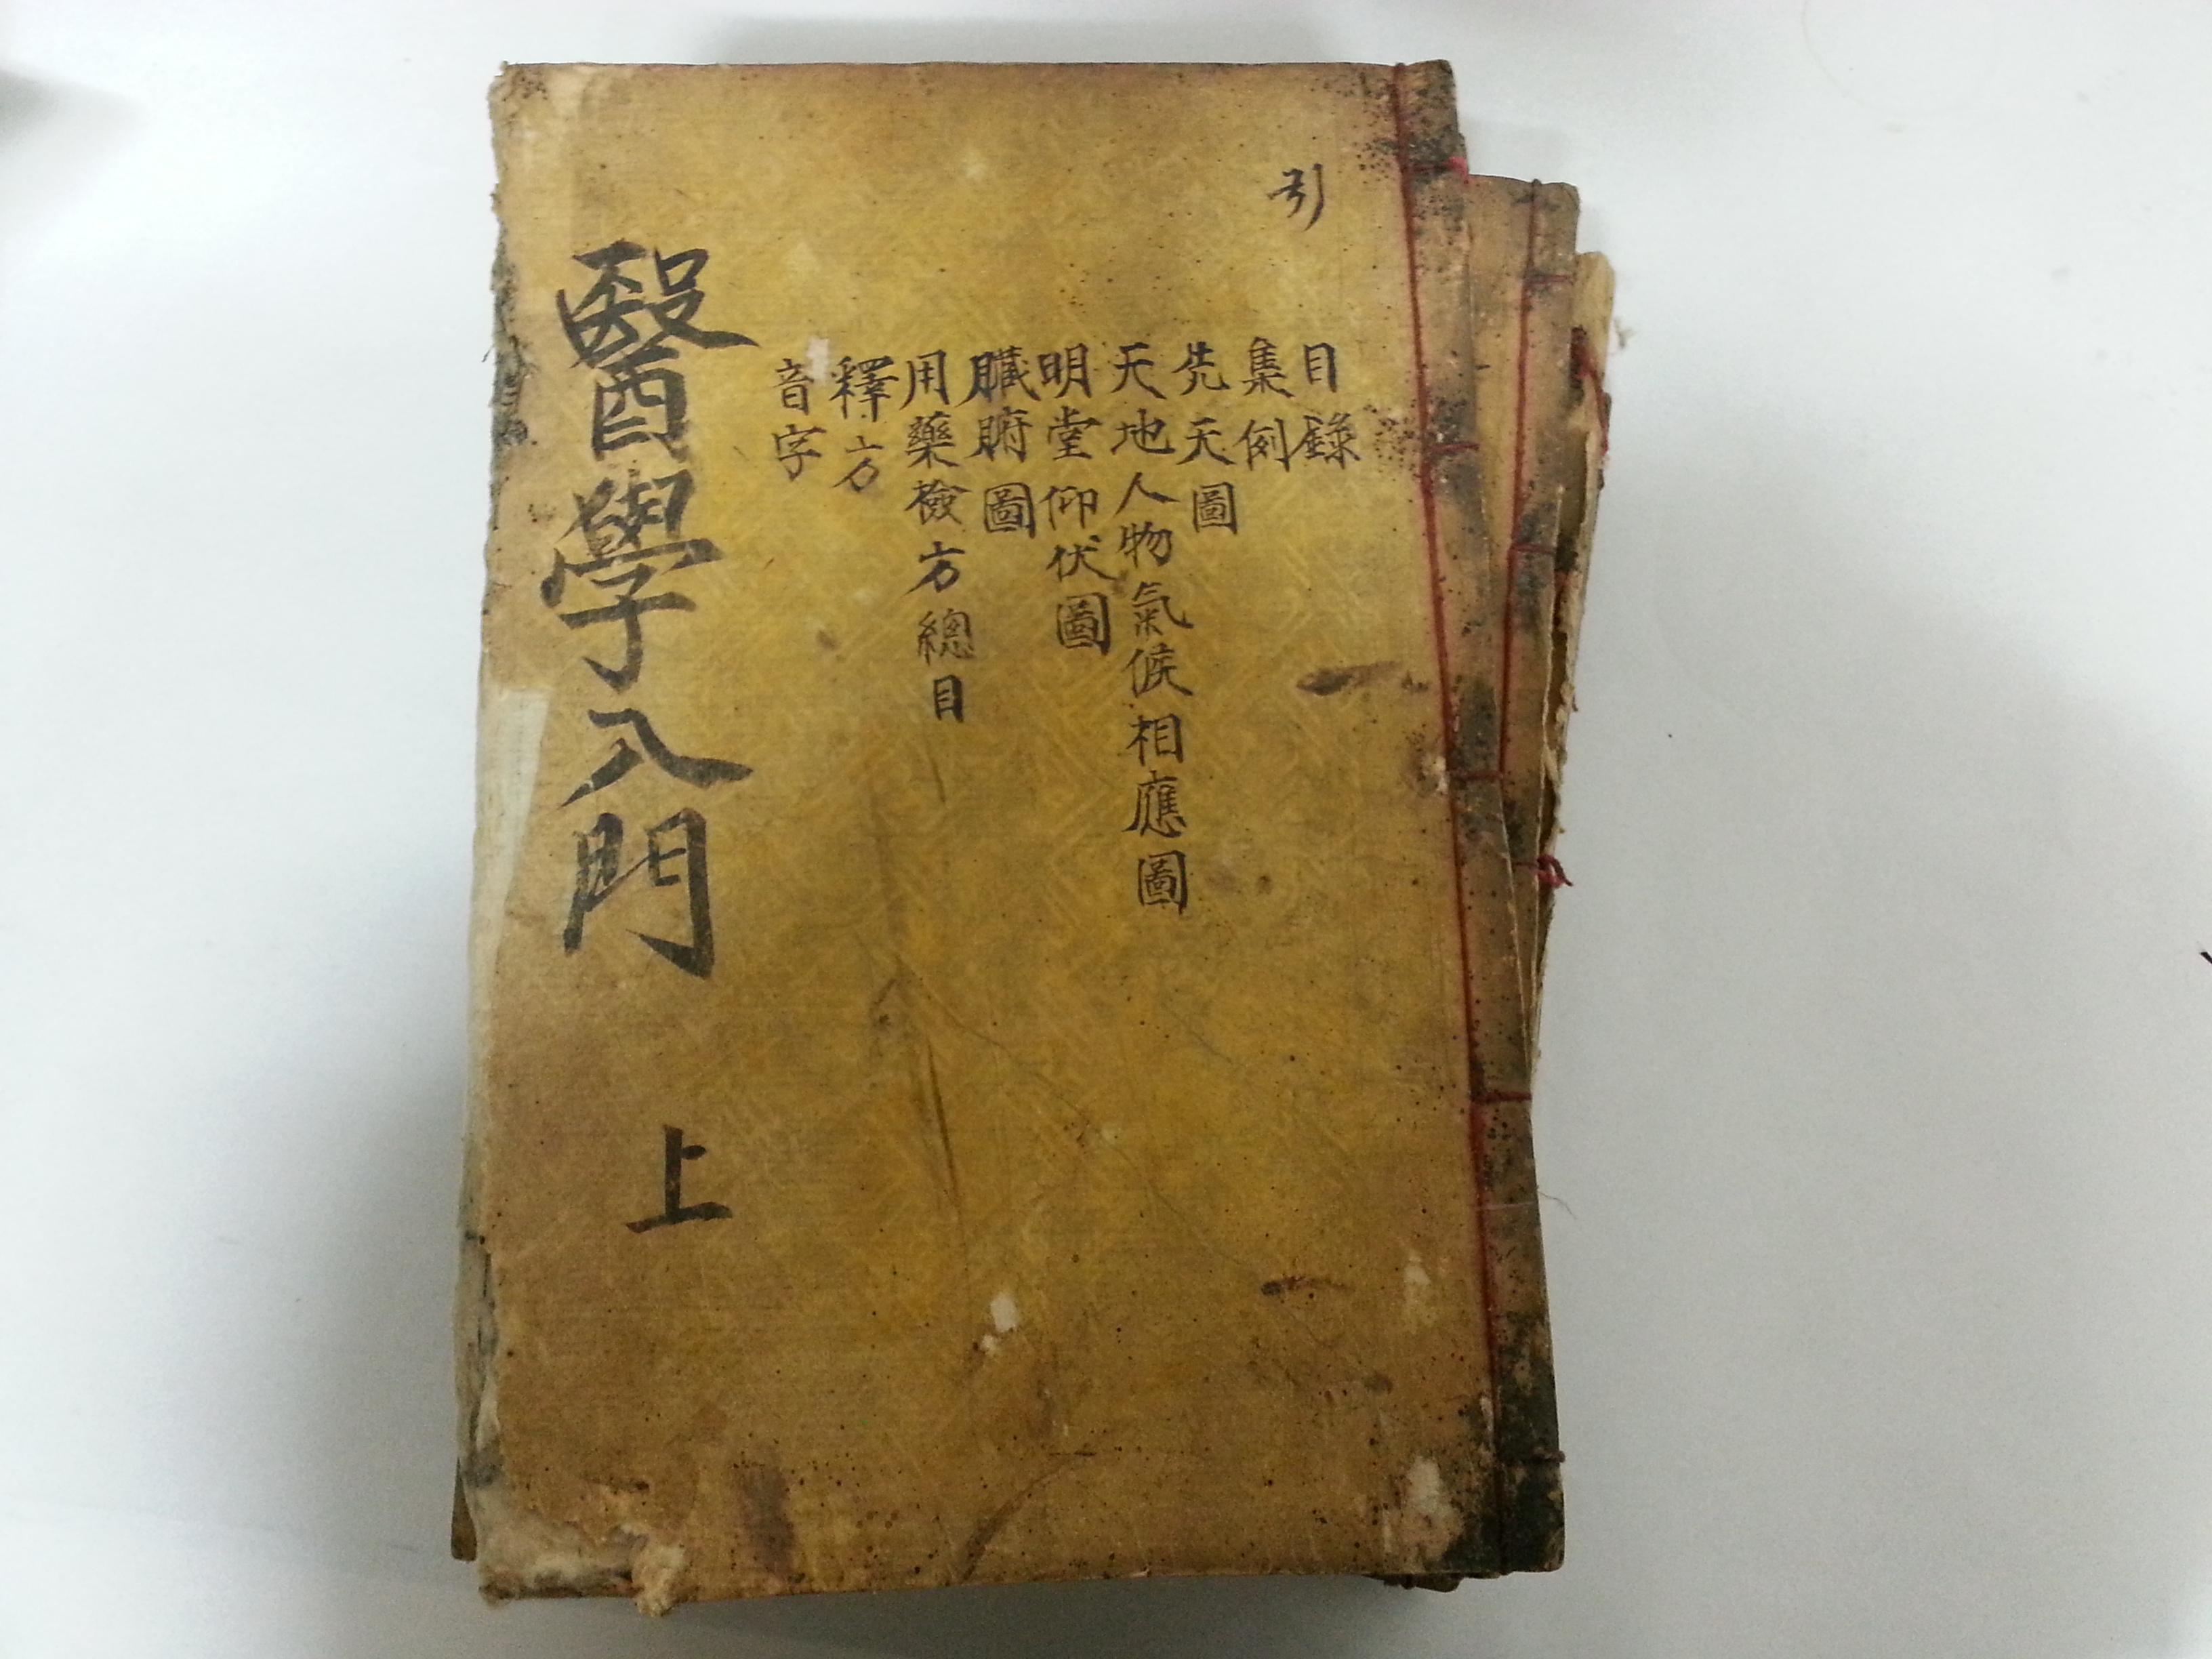 引
目錄
集例
先天圖
天地人物氣候相應圖
明堂仰伏圖
臟腑圖
用藥檢方總目
釋方
音字
醫學入門 上